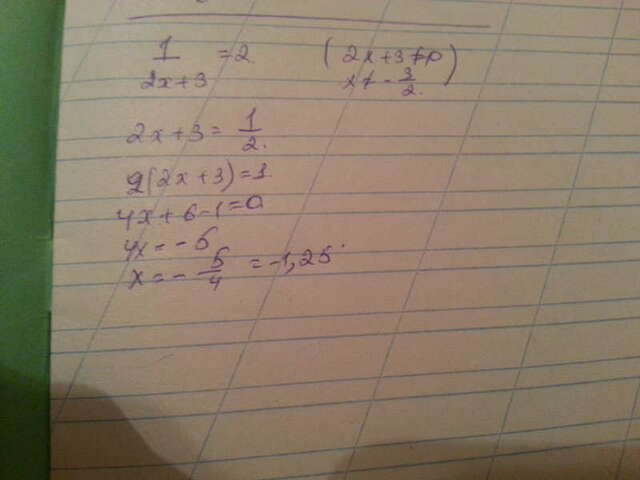 1/(2x+3) = 2 (2x+3≠0
x≠-3/2.)
2x+3 = 1/2.
2(2x+3)=1.
4x+6-1=0
4x=-5
x=-5/4 =-1,25.